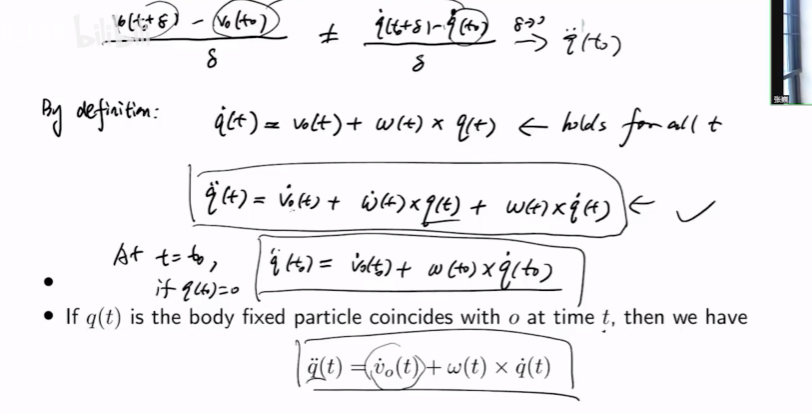 v₀(t₀+δ) − v₀(t₀) / δ ≠ q̇(t₀+δ) − q̇(t₀) / δ δ→0 → q̈(t₀)
张巍
By definition: q̇(t) = v₀(t) + ω(t) × q(t) ← holds for all t
q̈(t) = v̇₀(t) + ω̇(t) × q(t) + ω(t) × q̇(t) ← ✓
At t = t₀,
if q(t₀) = 0 q̈(t₀) = v̇₀(t₀) + ω(t₀) × q̇(t₀)
• If q(t) is the body fixed particle coincides with o at time t, then we have
q̈(t) = v̇ₒ(t) + ω(t) × q̇(t)